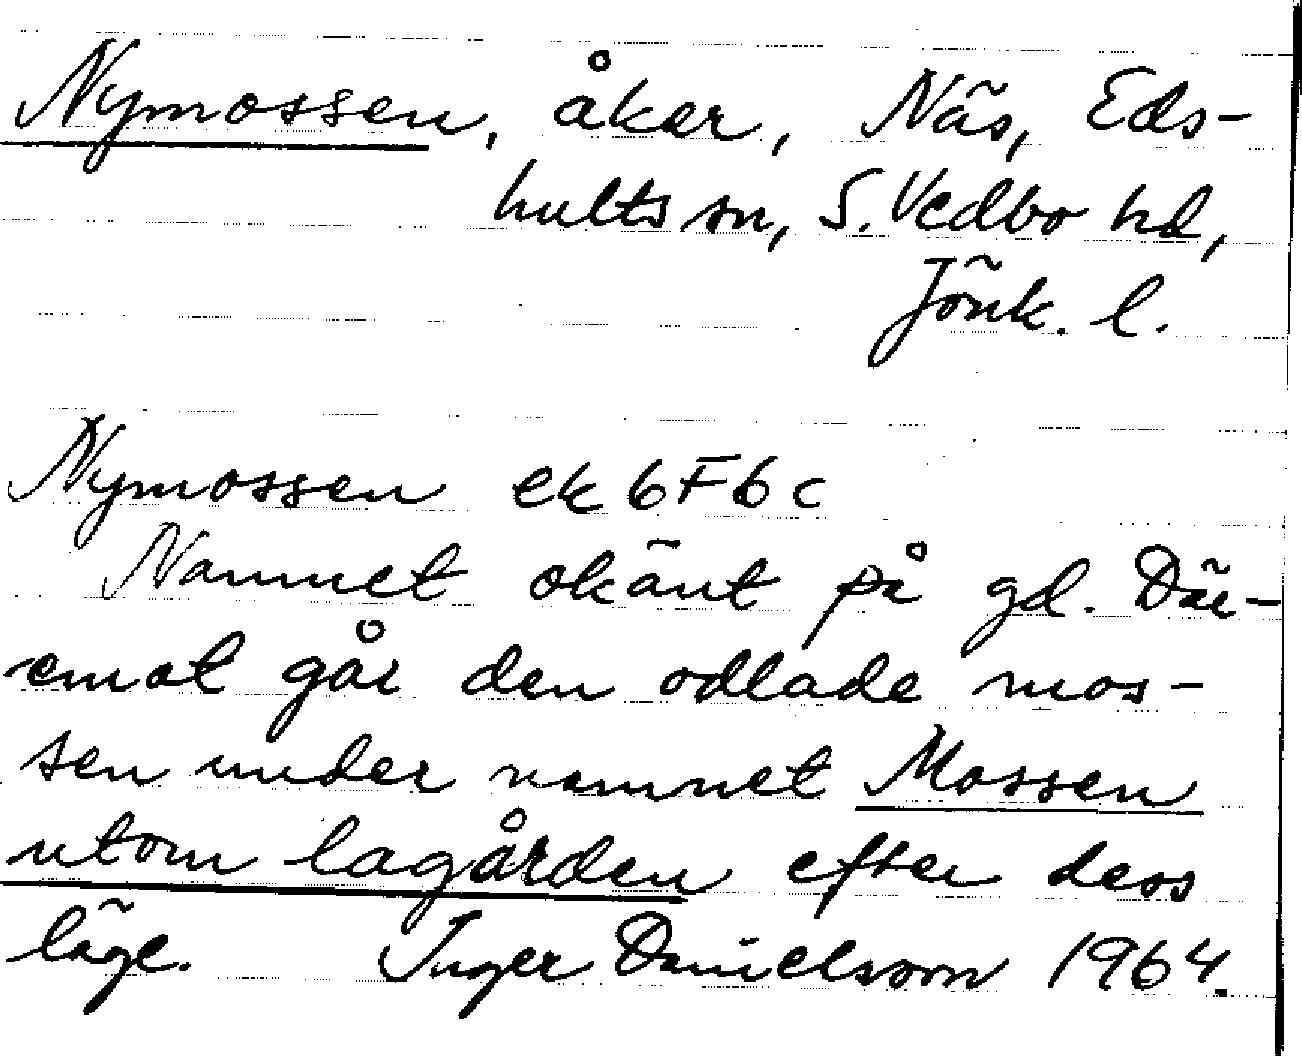 Nymossen, åker, Näs, Eds-
hults sn, S. Vedbo hd,
Jönk. l.
Nymossen ek 6F6c
Namnet okänt på gd. Där-
emot går den odlade mos-
sen under namnet Mossen
utom lagården efter dess
läge. Inger Danielsson 1964.